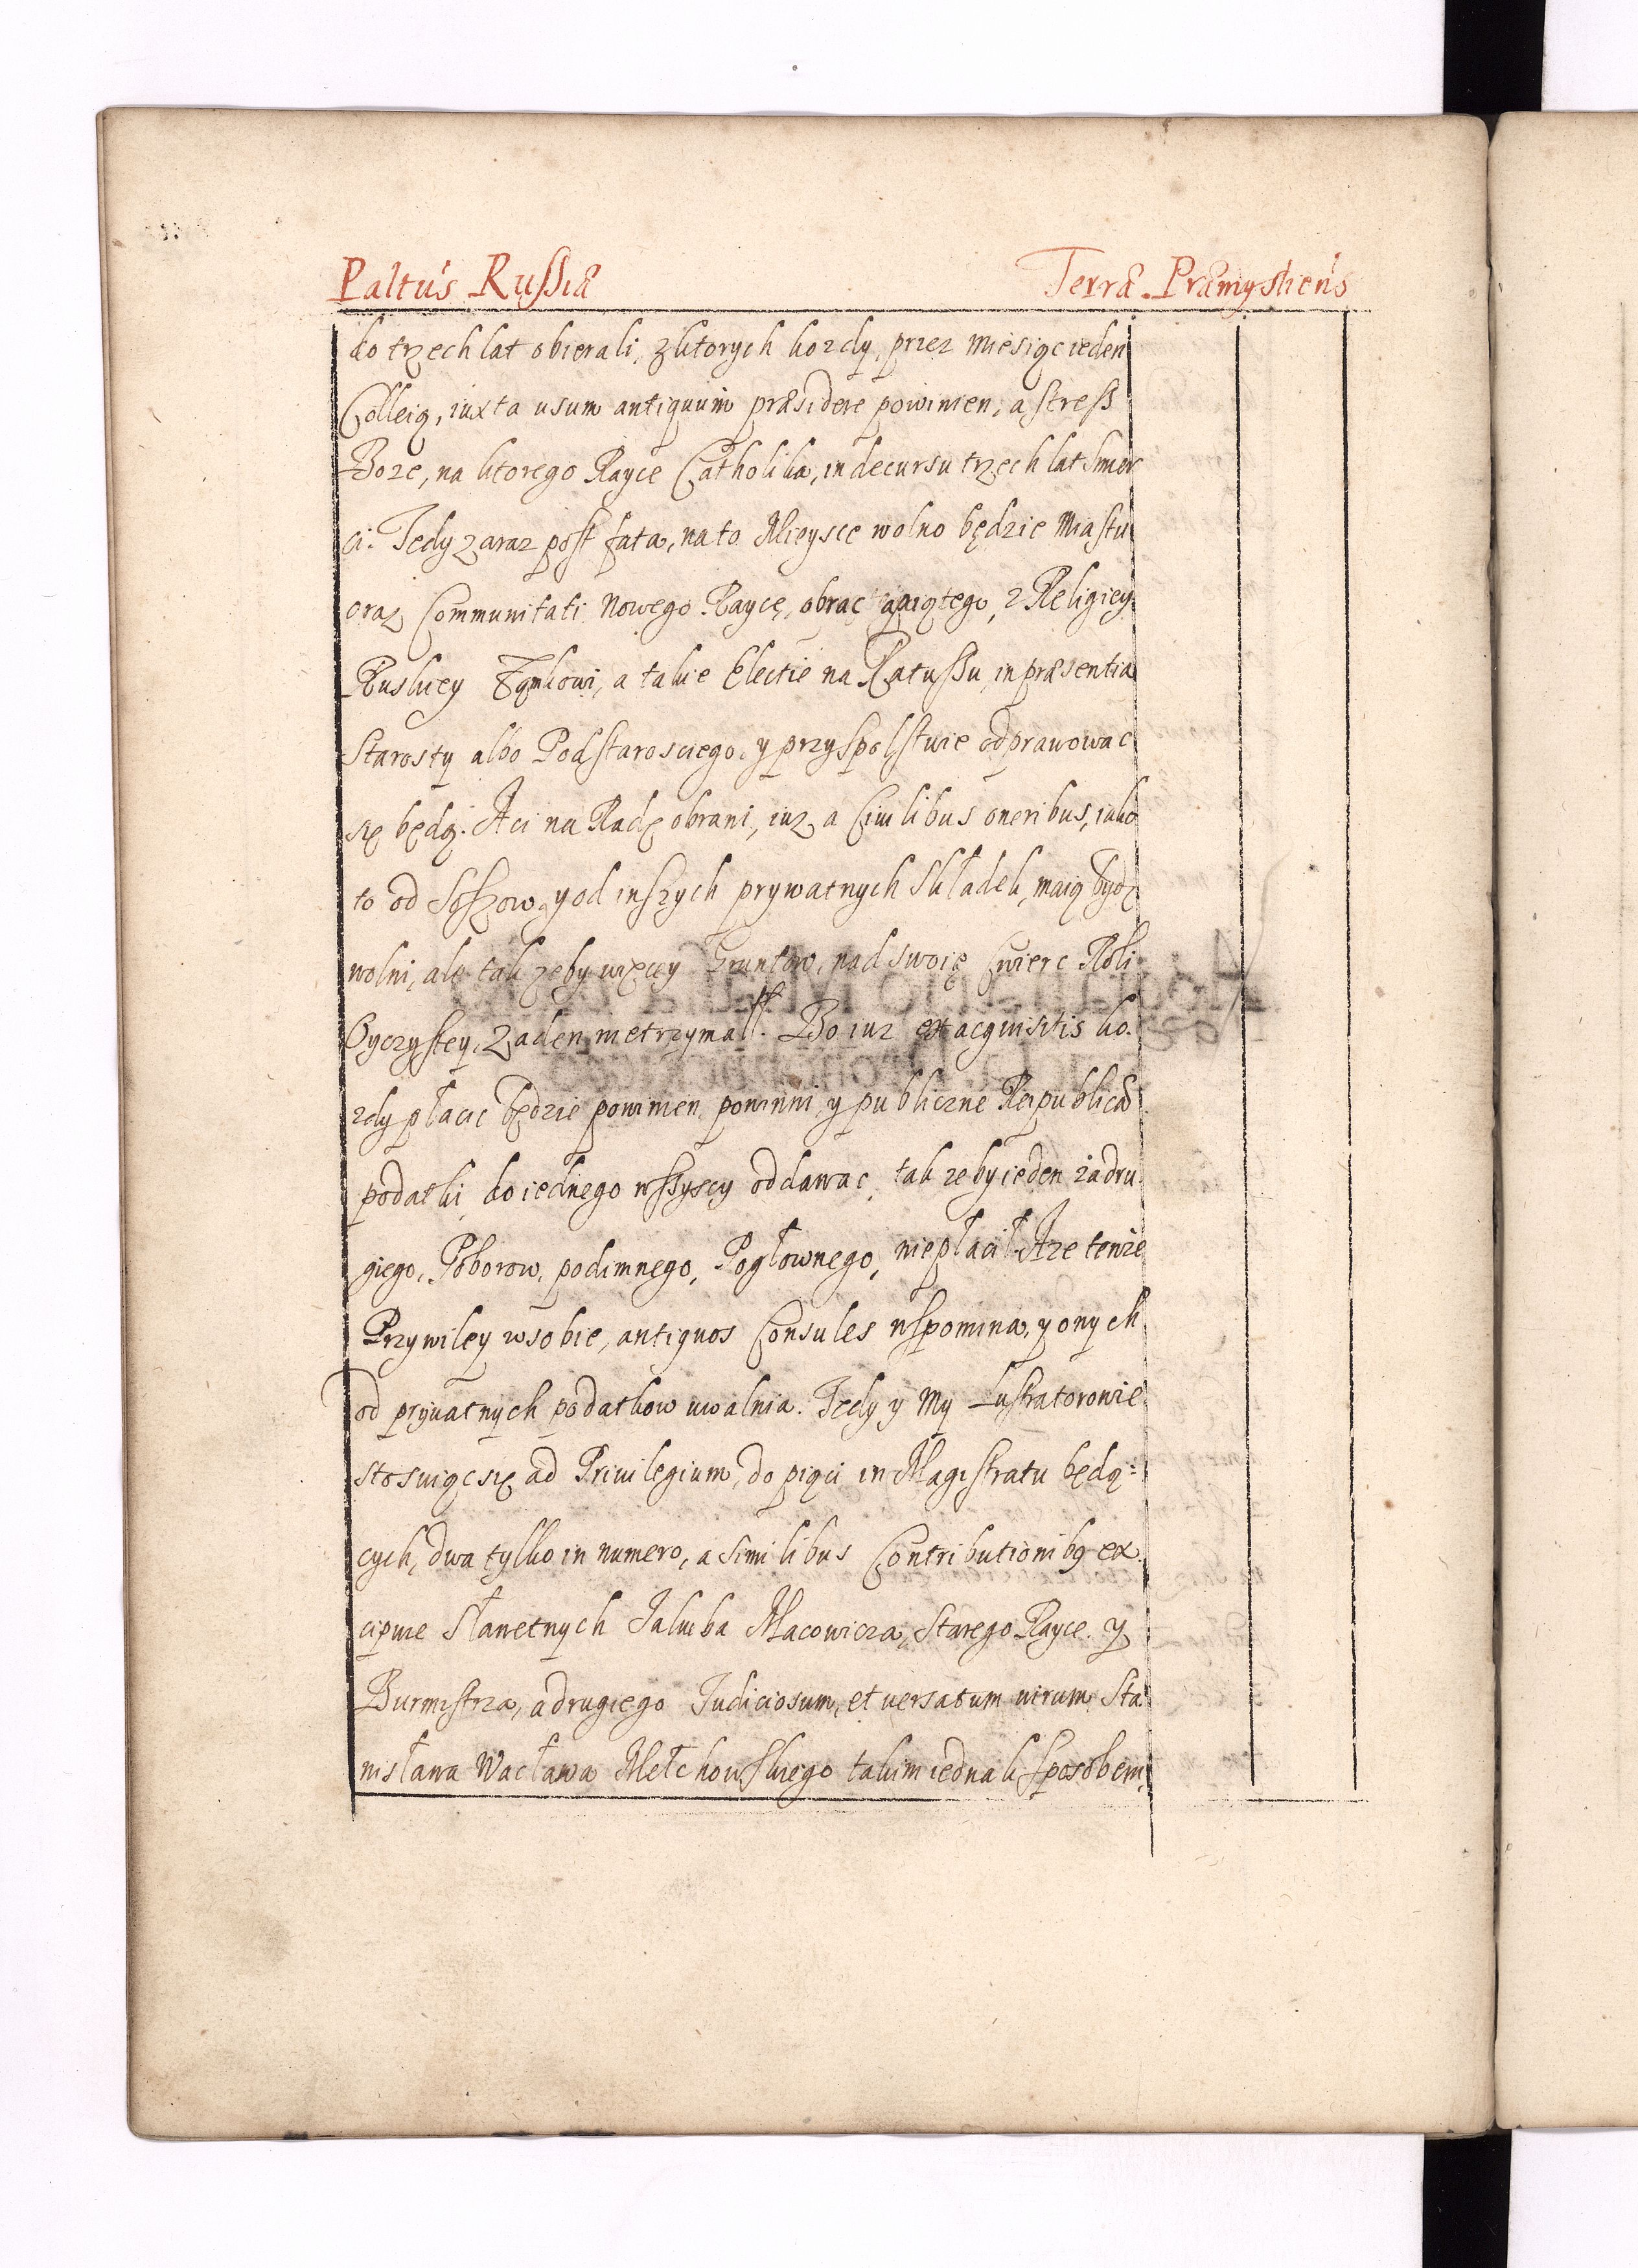 Paltus Russiæ Terræ Præmysliens
do trzech lat obierali, z ktorych kozdy, przez miesiąc ieden
Colleią, iuxta usum antiquum præsidere powinien, a strzeſz
Boze, na ktorego Rayce Catholika, in decursu trzech lat smier
ci. Tedy zaraz post fata, na to Mieysce wolno będzie Miastu
oraz Communitati Nowego Raycę, obrac a piątego, z Religiey
Ruskiey, a takie Electie na Ratuſzu, in præsentia
Starosty albo Podstarosciego, y przy Spolstwie odprawowac
się będą. A ci na Radę obrani, iuz a Ciuilibus oneribus, iako
to od Soszow, y od inszych prywatnych Składek, maią bydz
wolni, ale tak zeby więcey Gruntow, nad swoię Cwierc Roli
Oyczystey, Zaden nie trzymał. Bo iuz ex acquisitis ko.
zdy płacic będzie powinien powinni, y publiczne Reipublicæ
podatki do iednego wſzyscy oddawac, tak zeby ieden za dru
giego, Poborow, podimnego, Pogłownego, nie płacił. A ze tenze
Przywiley w sobie, antiquos Consules wspomina, y onych
od prywatnych podatkow uwalnia. Tedy y My Lustratorowie
stosuiąc się ad Priuilegium, do piąci in Magistratu będą=
cych, dwa tylko in numero, a similibus Contributionibꝰ ex
cipuie Sławetnych Jakuba Macowicza, Starego Rayce. y
Burmistrza, a drugiego Judiciosum, et uersatum uirum Sta
nisława Wacława Mełchowskiego takim iednak sposobem,